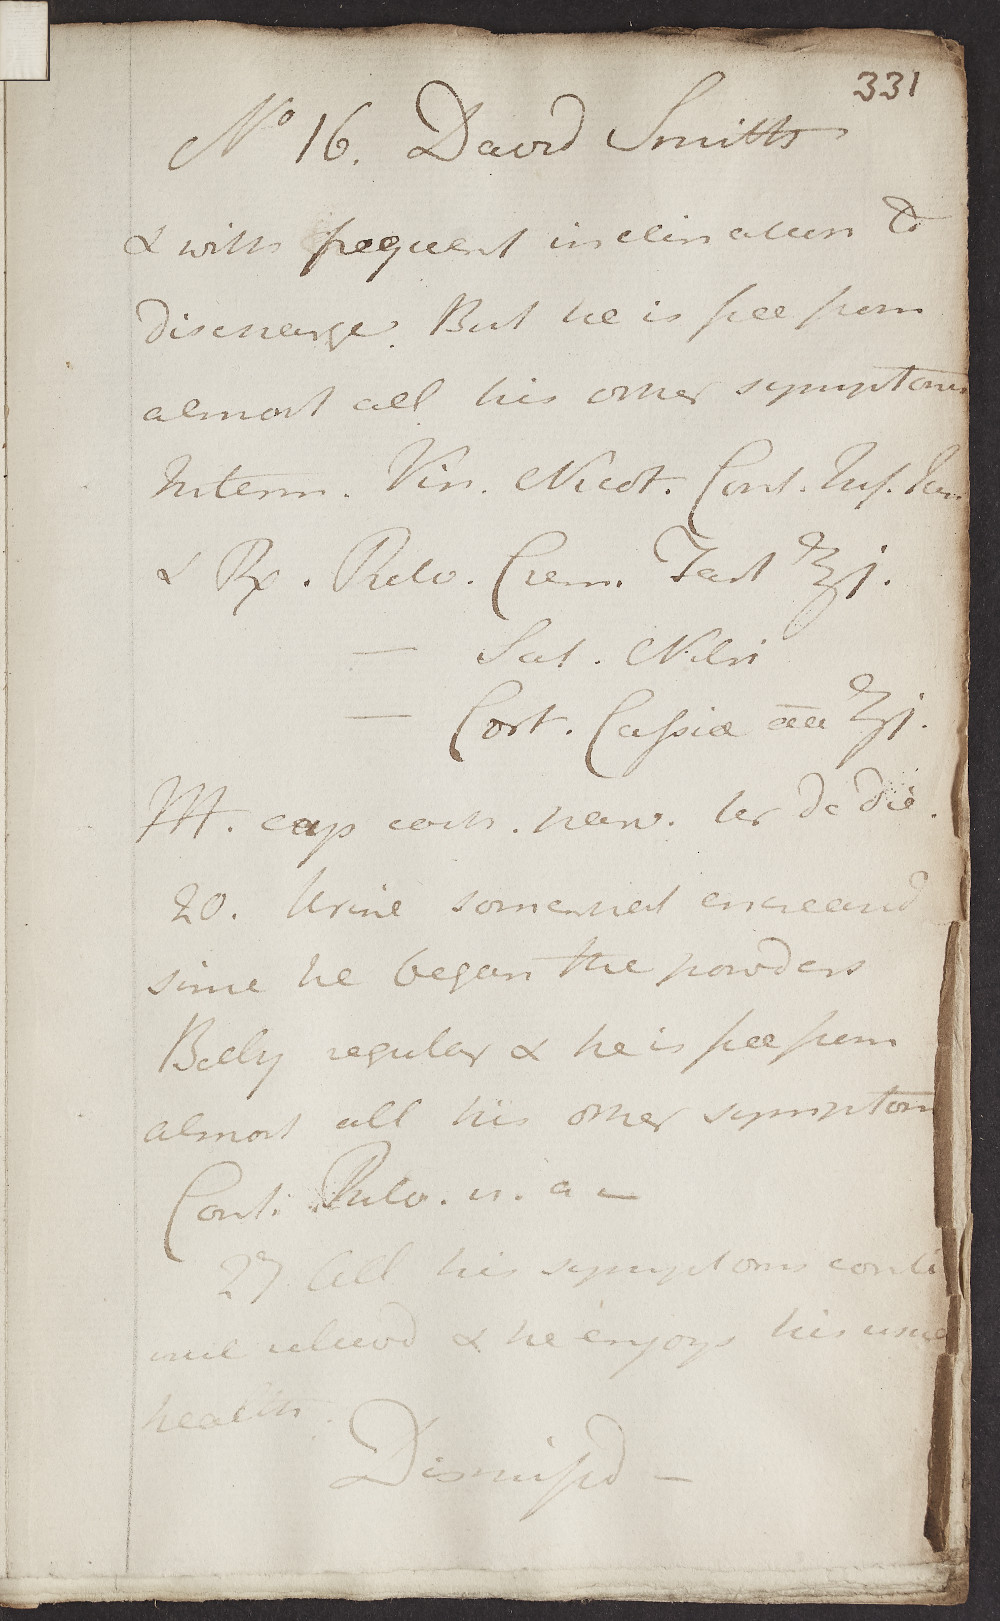 331
No 16. David Smith
& with frequent inclination to
discharge. But he is free from
almost all his other symptoms
Interm. Vin. Nicot. Cont. Inf.
& Rx. Pulv. Crem. Tart ʒj.
— Sal. Nitri
— Cort. Cassiæ āā ʒj.
M. cap coch. parv. ter de die.
20. Urine somewhat encreased
since he began the powders
Belly regular & he is free from
almost all his other symptom
Cont. Pulv. u. a —
27 All his symptoms conti
nue relieved & he enjoys his usual
health.
Dismissd —